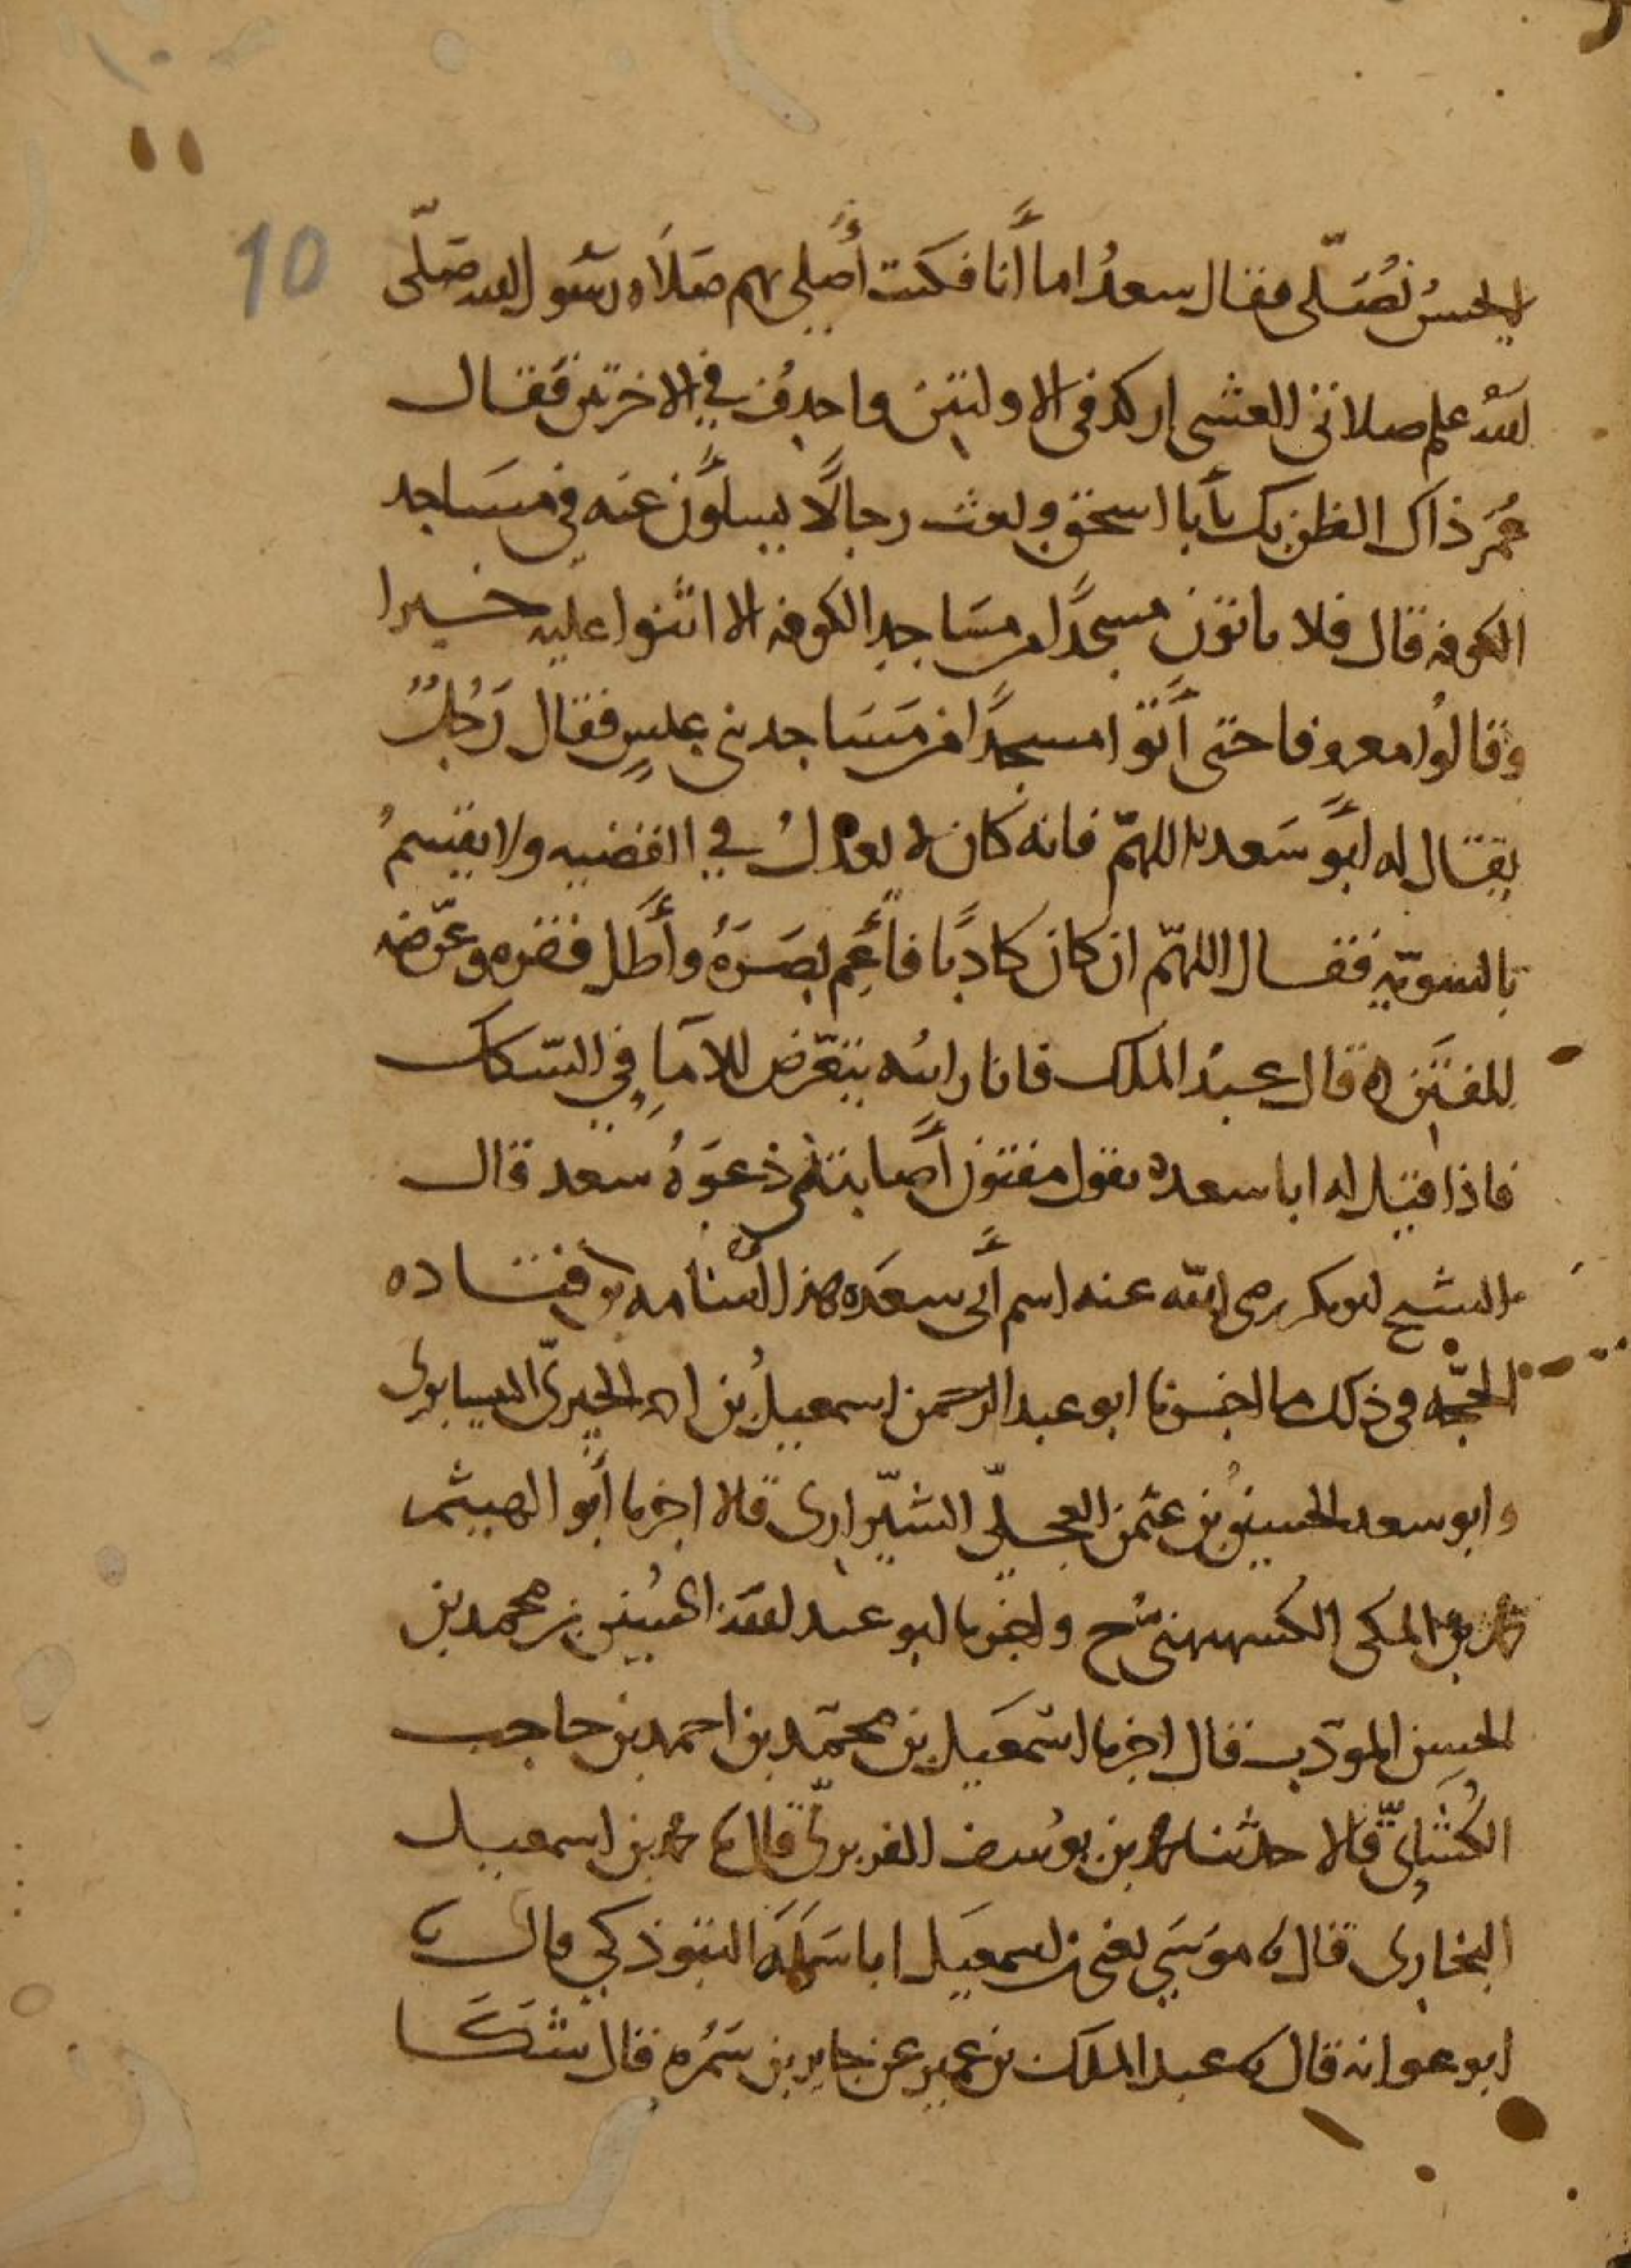 10
يحسن نُصَلّى فقال سعدٌ اما أنا فكنت أُصلى بهم صَلَاه رسُول الله صَلّى
الله علم صلاتى العشى اركد فى الاوليين واحذف في الاخريين فقال
عُمَر ذاك الظن بك يأبا اسحق وبعث رجالًا يسلَوُن عنه في مسَاجد
الكوفه قال فلا ياتون مسجدًا من مسَاجِد الكوفه الا اثنوا عليه خيرا
وقالوُا معروفا حتى أتوا مسجدًا من مَسَاجد بنى عبسٍ فقال رَجُلٌ
يقال له ابَو سَعده اللهمّ فانه كان لا يعدلُ في القضيه ولا يقسمُ
بالسويّه فقال اللهّم ان كان كاذبًا فأَعِم بصَرَهُ وأَطَل فقره وعرّضه
للفتَن قال عبدُ الملك فانا رايته يتعّرض للامَاءِ في السّكك
فاذا قيل له ابا سعده يقول مفتون أصابتنى دعوَهُ سعد قال
الشيخ ابو بكر رضى الله عنه اسم أبى سعَده هذا اسَامه بن قتاده
الحجّه في ذلك ما اخبرنا ابو عبد الرحمَن اسمعيلُ بن احمد الحيرىّ النيسابورى
وابو سعد الحسينُ بن عثمن العجلىّ الشيّرازى قالا اخبرنا أبو الهيثم
محمد بن المكى الكشميهنىّ ح واخبرنا ابو عبد الله الحُسين بن محمد بن
الحسن المودّب قال اخبرنا اسَمعيل بن محمّد بن احمد بن حاجب
الكُشَانِىّ قالا حدثنا محمد بن يوُسف الفربرىّ قال محمد بن اسمعيل
البخارى قال موسَى يعنى بن اسمعيل ابا سَلَمَه التبوذكي قال
ابو عوانه قال عبد الملك بن عمير عن جابر بن سَمُره قال شَكَا